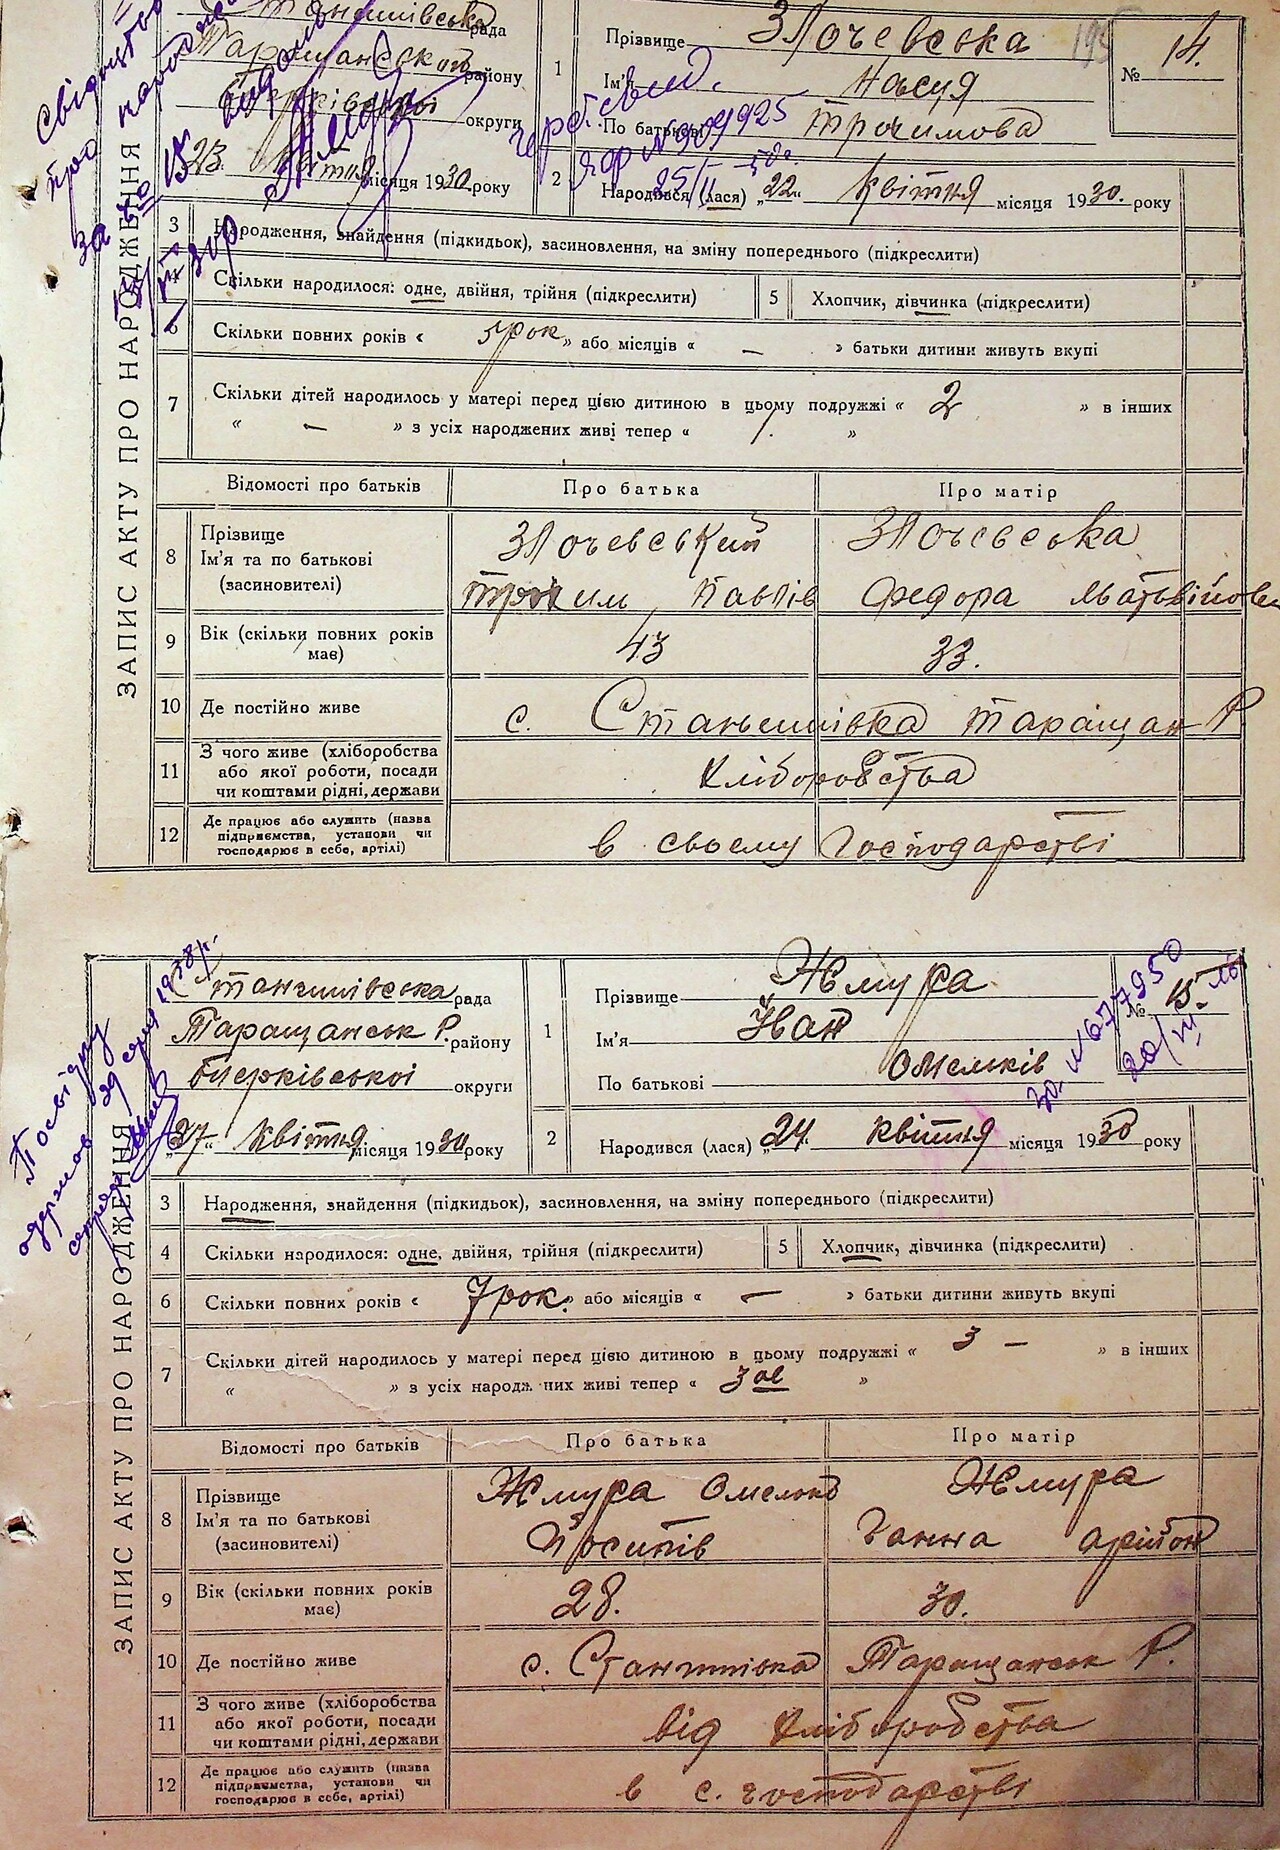 ЗАПИС АКТУ ПРО НАРОДЖЕННЯ
Свідоцтво
про народж
за № 15
рада
Таращанськ району
округи
23 квітня місяця 1930 року
1
Прізвище Злочевська
Ім'я Настя
По батькові Трохимова
№ 14.
№ 909925
25/II
2
Народився (лася) „22“ квітня місяця 1930. року
3
Народження, знайдення (підкидьок), засиновлення, на зміну попереднього (підкреслити)
Скільки народилося: одне, двійня, трійня (підкреслити)
5
Хлопчик, дівчинка (підкреслити)
6
Скільки повних років « 5 рок » або місяців « — » батьки дитини живуть вкупі
7
Скільки дітей народилось у матері перед цією дитиною в цьому подружжі « 2 » в інших
« — » з усіх народжених живі тепер « 1. »
Відомості про батьків
Про батька
Про матір
8
Прізвище
Ім'я та по батькові
(засиновителі)
Злочевський
Трохим Павлів
Злочевська
Федора Матьвійовн
9
Вік (скільки повних років
має)
43
33.
10
Де постійно живе
с. Станишівка Таращан Р
11
З чого живе (хліборобства
або якої роботи, посади
чи коштами рідні, держави
Хліборобства
12
Де працює або служить (назва
підприємства, установи чи
господарює в себе, артілі)
в своему господарстві
ЗАПИС АКТУ ПРО НАРОДЖЕННЯ
Посвідку
одержав 29 серпня 1938 р.
Станишівська рада
Таращанськ Р. району
Білоцерківської округи
„27“ квітня місяця 1930 року
1
Прізвище Жмура
Ім'я Іван
По батькові Омельків
№ 15
№ 677950
20/III
2
Народився (лася) „24“ квітня місяця 1930 року
3
Народження, знайдення (підкидьок), засиновлення, на зміну попереднього (підкреслити)
4
Скільки народилося: одне, двійня, трійня (підкреслити)
5
Хлопчик, дівчинка (підкреслити)
6
Скільки повних років « 7 рок. » або місяців « — » батьки дитини живуть вкупі
7
Скільки дітей народилось у матері перед цією дитиною в цьому подружжі « 3 — » в інших
« » з усіх народж них живі тепер « 3 »
Відомості про батьків
Про батька
Про матір
8
Прізвище
Ім'я та по батькові
(засиновителі)
Жмура Омелько
Йосипів
Жмура
Ганна
9
Вік (скільки повних років
має)
28.
30.
10
Де постійно живе
с. Станишівка Таращанськ Р.
11
З чого живе (хліборобства
або якої роботи, посади
чи коштами рідні, держави
від хліборобства
12
Де працює або служить (назва
підприємства, установи чи
господарює в себе, артілі)
в с. господарстві